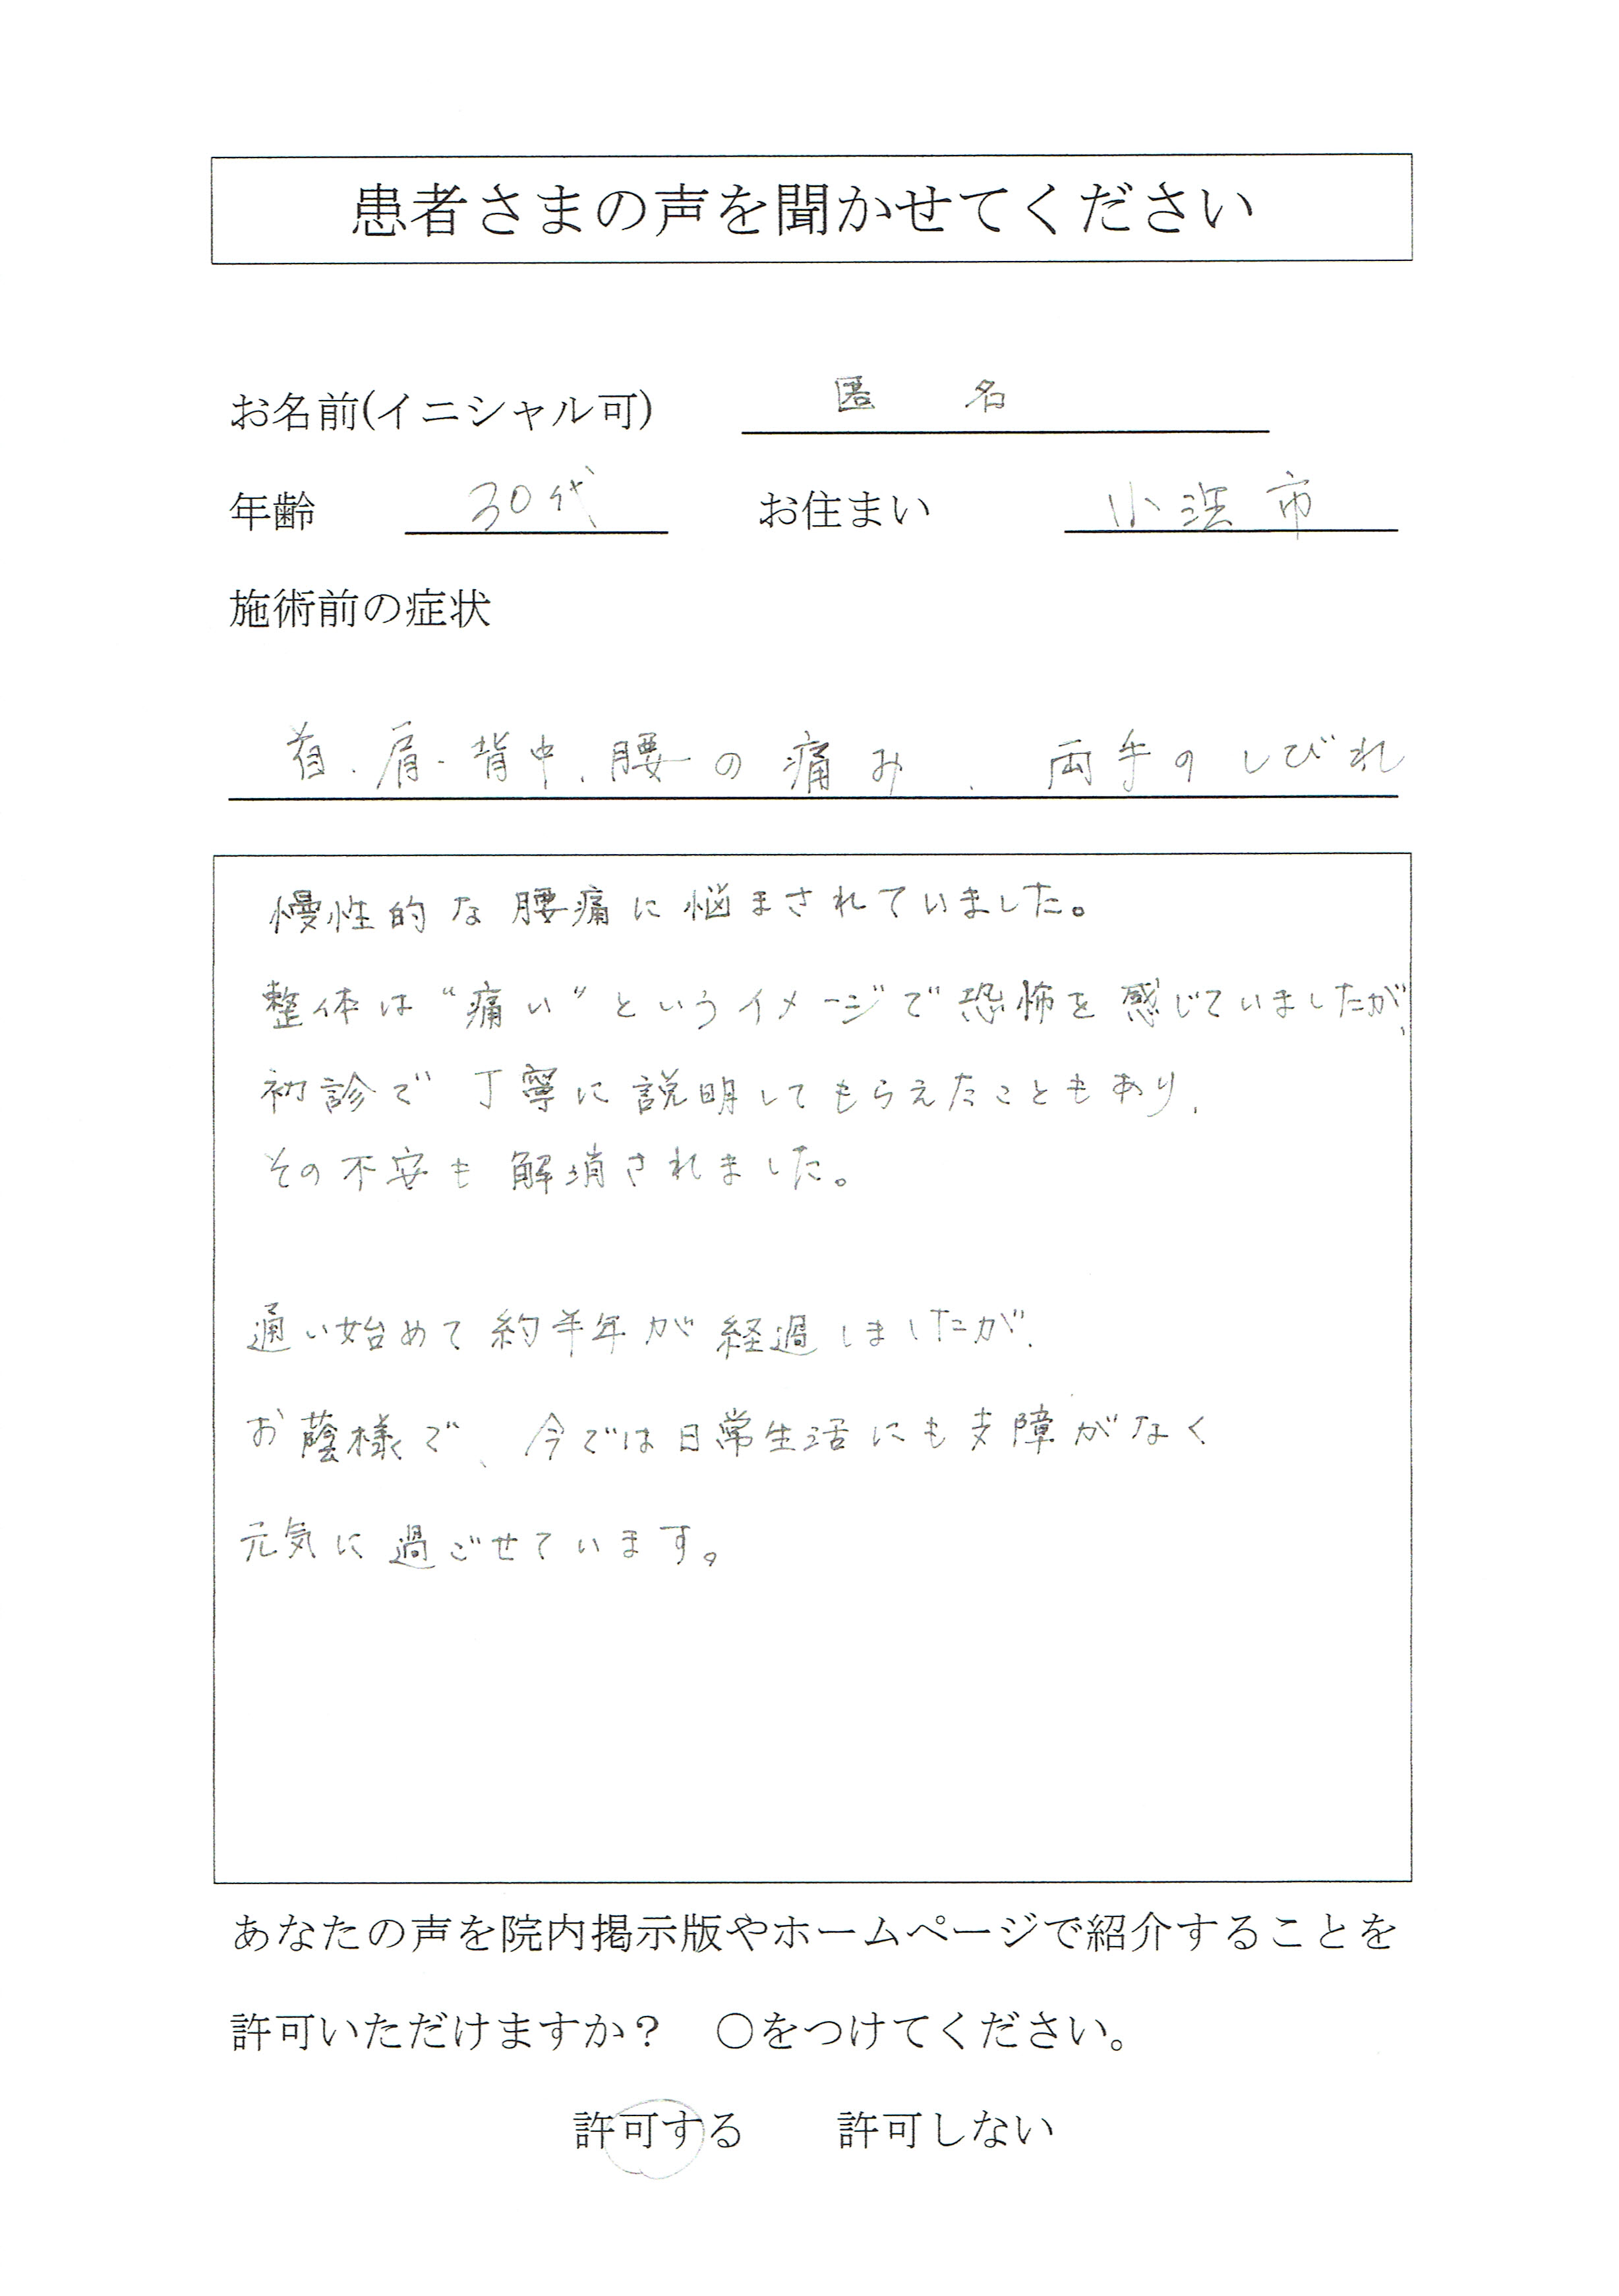 患者さまの声を聞かせてください
お名前(イニシャル可) 匿名
年齢 30代 お住まい 小浜市
施術前の症状
首、肩、背中、腰の痛み、両手のしびれ
慢性的な腰痛に悩まされていました。
整体は“痛い”というイメージで恐怖を感じていましたが、
初診で丁寧に説明してもらえたこともあり、
その不安も解消されました。
通い始めて約半年が経過しましたが、
お蔭様で、今では日常生活にも支障がなく
元気に過ごせています。
あなたの声を院内掲示版やホームページで紹介することを
許可いただけますか？ ○をつけてください。
許可する 許可しない